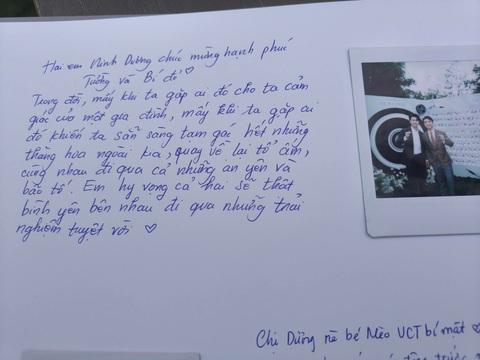 Hai em Minh Dương chúc mừng hạnh phúc
Tường và Bí đỏ ♡
Trong đời, mấy khi ta gặp ai đó cho ta cảm
giác của một gia đình, mấy khi ta gặp ai
đó khiến ta sẵn sàng tạm gác hết những
thăng hoa ngoài kia, quay về lại tổ ấm,
cùng nhau đi qua cả những an yên và
bão tố. Em hy vọng cả hai sẽ thật
bình yên bên nhau đi qua những trải
nghiệm tuyệt vời ♡
Chị Dương nè bé Mèo VCT bí mật